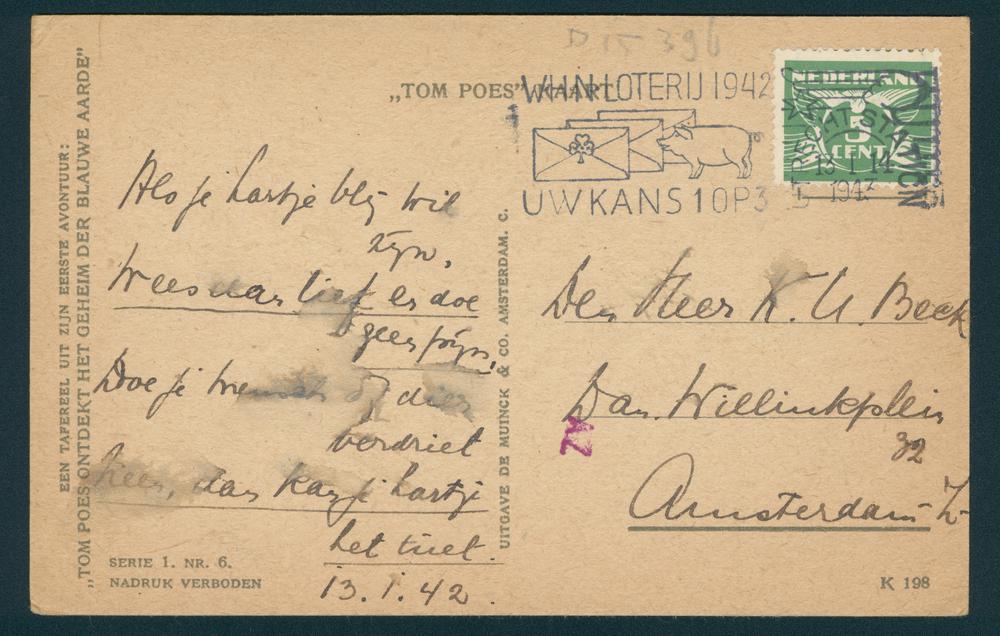 D 15 396
„TOM POES” KAART
WHN-LOTERIJ 1942
UW KANS 1 OP 3
NEDERLAND
5
CENT
UTRECHT-STATION
13 I 14
194
EEN TAFEREEL UIT ZIJN EERSTE AVONTUUR:
„TOM POES ONTDEKT HET GEHEIM DER BLAUWE AARDE”
Als je hartje blij wil
zijn,
Wees dan lief en doe
geen pijn,
Doe je mensch of dier
verdriet
heen, dan kan je hartje
het niet.
13.1.42.
SERIE 1. NR. 6.
NADRUK VERBODEN
UITGAVE DE MUINCK & CO. AMSTERDAM. C.
Den Heer K. U. Beck
Dan. Willinkplein
32
Amsterdam-Z-
ZA
K 198